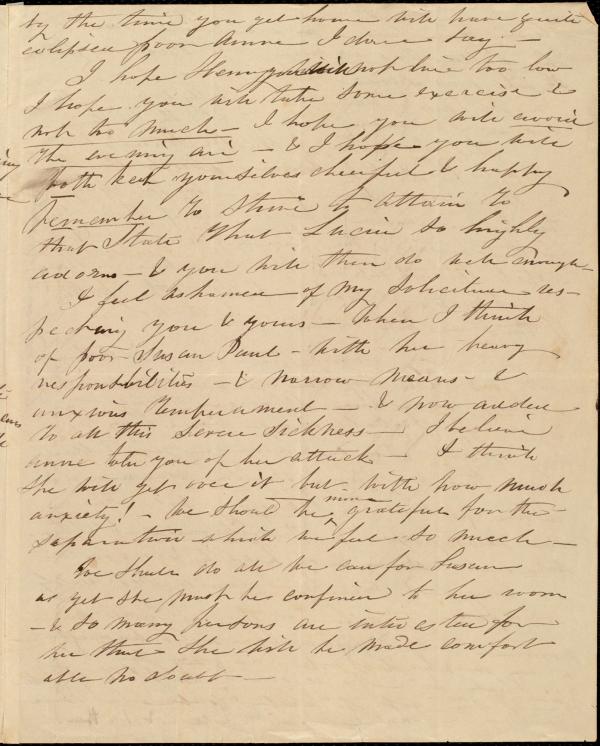 by the time you get home will have quite
eclipsed poor Anne I dare say. —
I hope Henry will not live too low
I hope you will take some exercise &
not too much — I hope you will avoid
the evening air — & I hope you will
both keep yourselves cheerful & happy
remember to strive to attain to
that State that Lucia so highly
adorns — & you will then do well enough —
I feel ashamed of my Solicitude res-
pecting you & yours — When I think
of poor Susan Paul — with her heavy
responsibilities — & narrow means — &
anxious temperament — & now added
to all this severe Sickness — I believe
Anne told you of her attack — I think
She will get over it but with how much
anxiety! — We should be more grateful for the
separation which we feel so much —
We shall do all we can for Susan
as yet she must be confined to her room
— & so many persons are interested for
her that she will be made comfort
able no doubt —